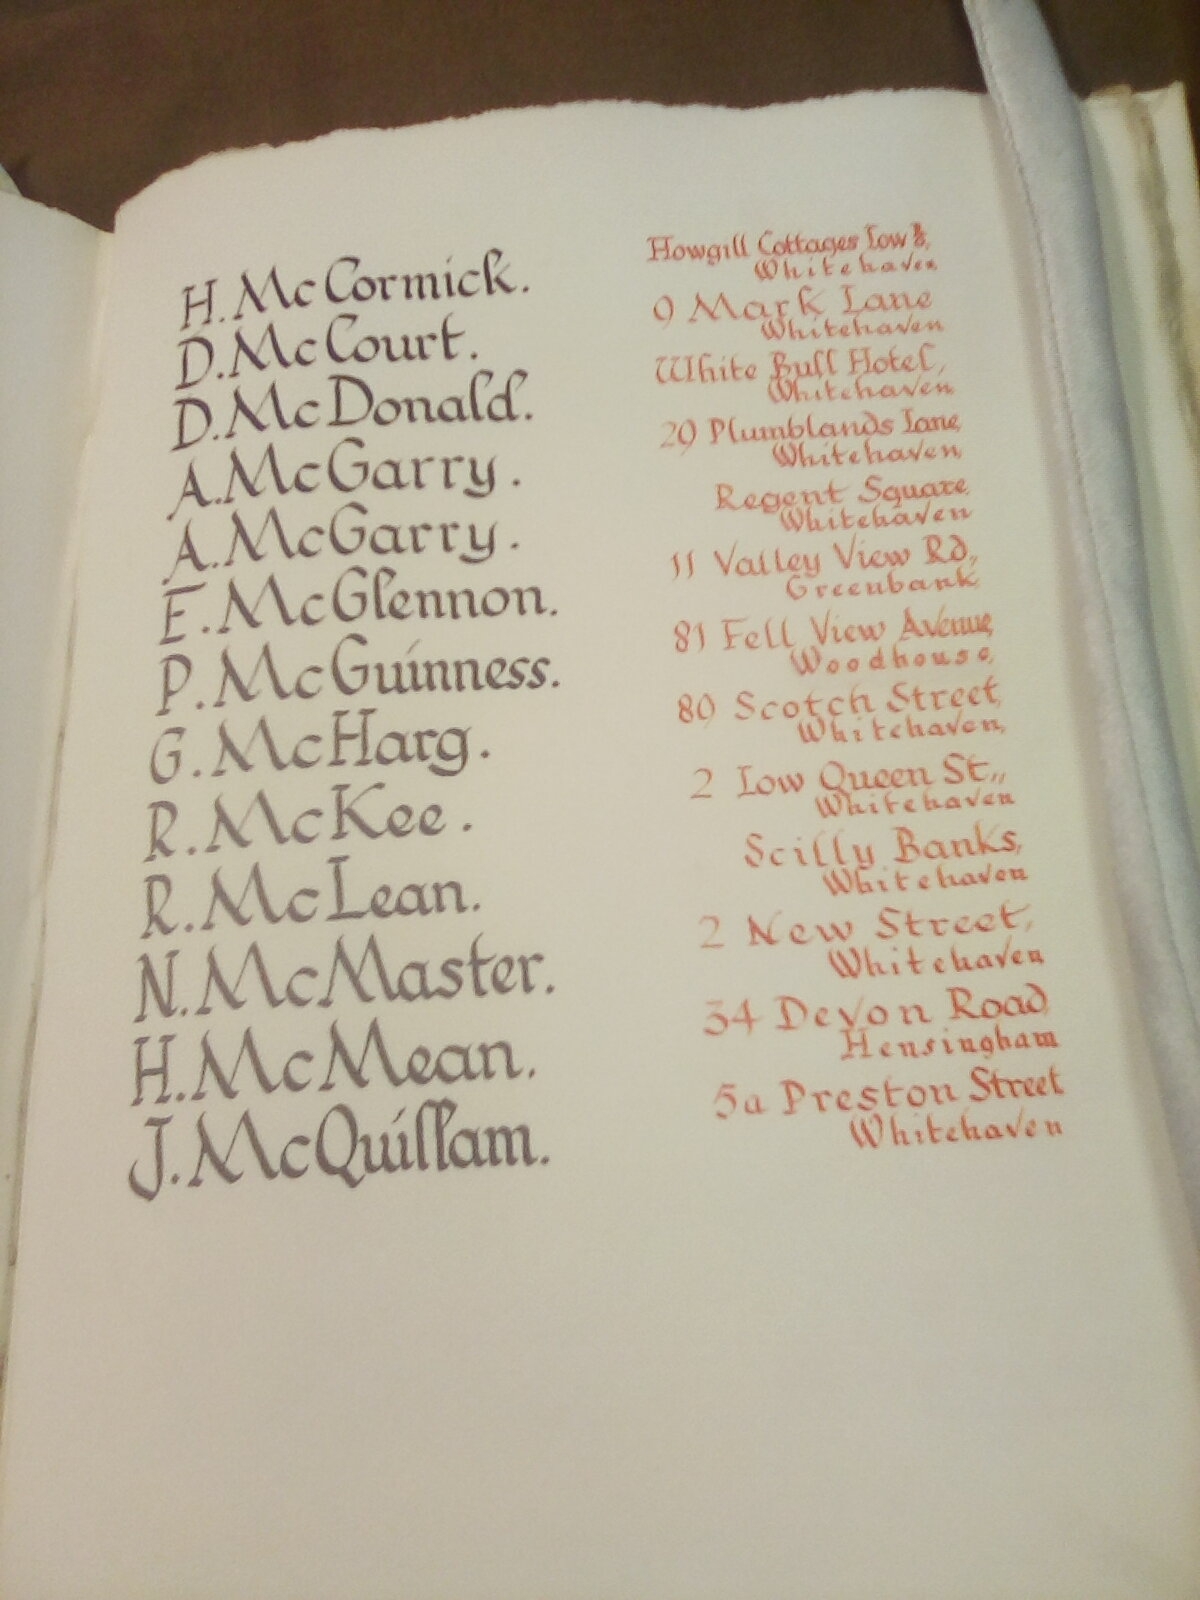 H. McCormick. Howgill Cottages Low
Whitehaven
D. McCourt. 9 Mark Lane
Whitehaven
D. McDonald. White Bull Hotel,
Whitehaven
A. McGarry. 29 Plumblands Lane,
Whitehaven
A. McGarry. Regent Square,
Whitehaven
E. McGlennon. 11 Valley View Rd,,
Greenbank
P. McGuinness. 81 Fell View Avenue,
Woodhouse,
G. McHarg. 80 Scotch Street,
Whitehaven,
R. McKee. 2 Low Queen St,,
Whitehaven
R. McLean. Scilly Banks,
Whitehaven
N. McMaster. 2 New Street,
Whitehaven
H. McMean. 34 Devon Road,
Hensingham
J. McQuillam. 5a Preston Street
Whitehaven